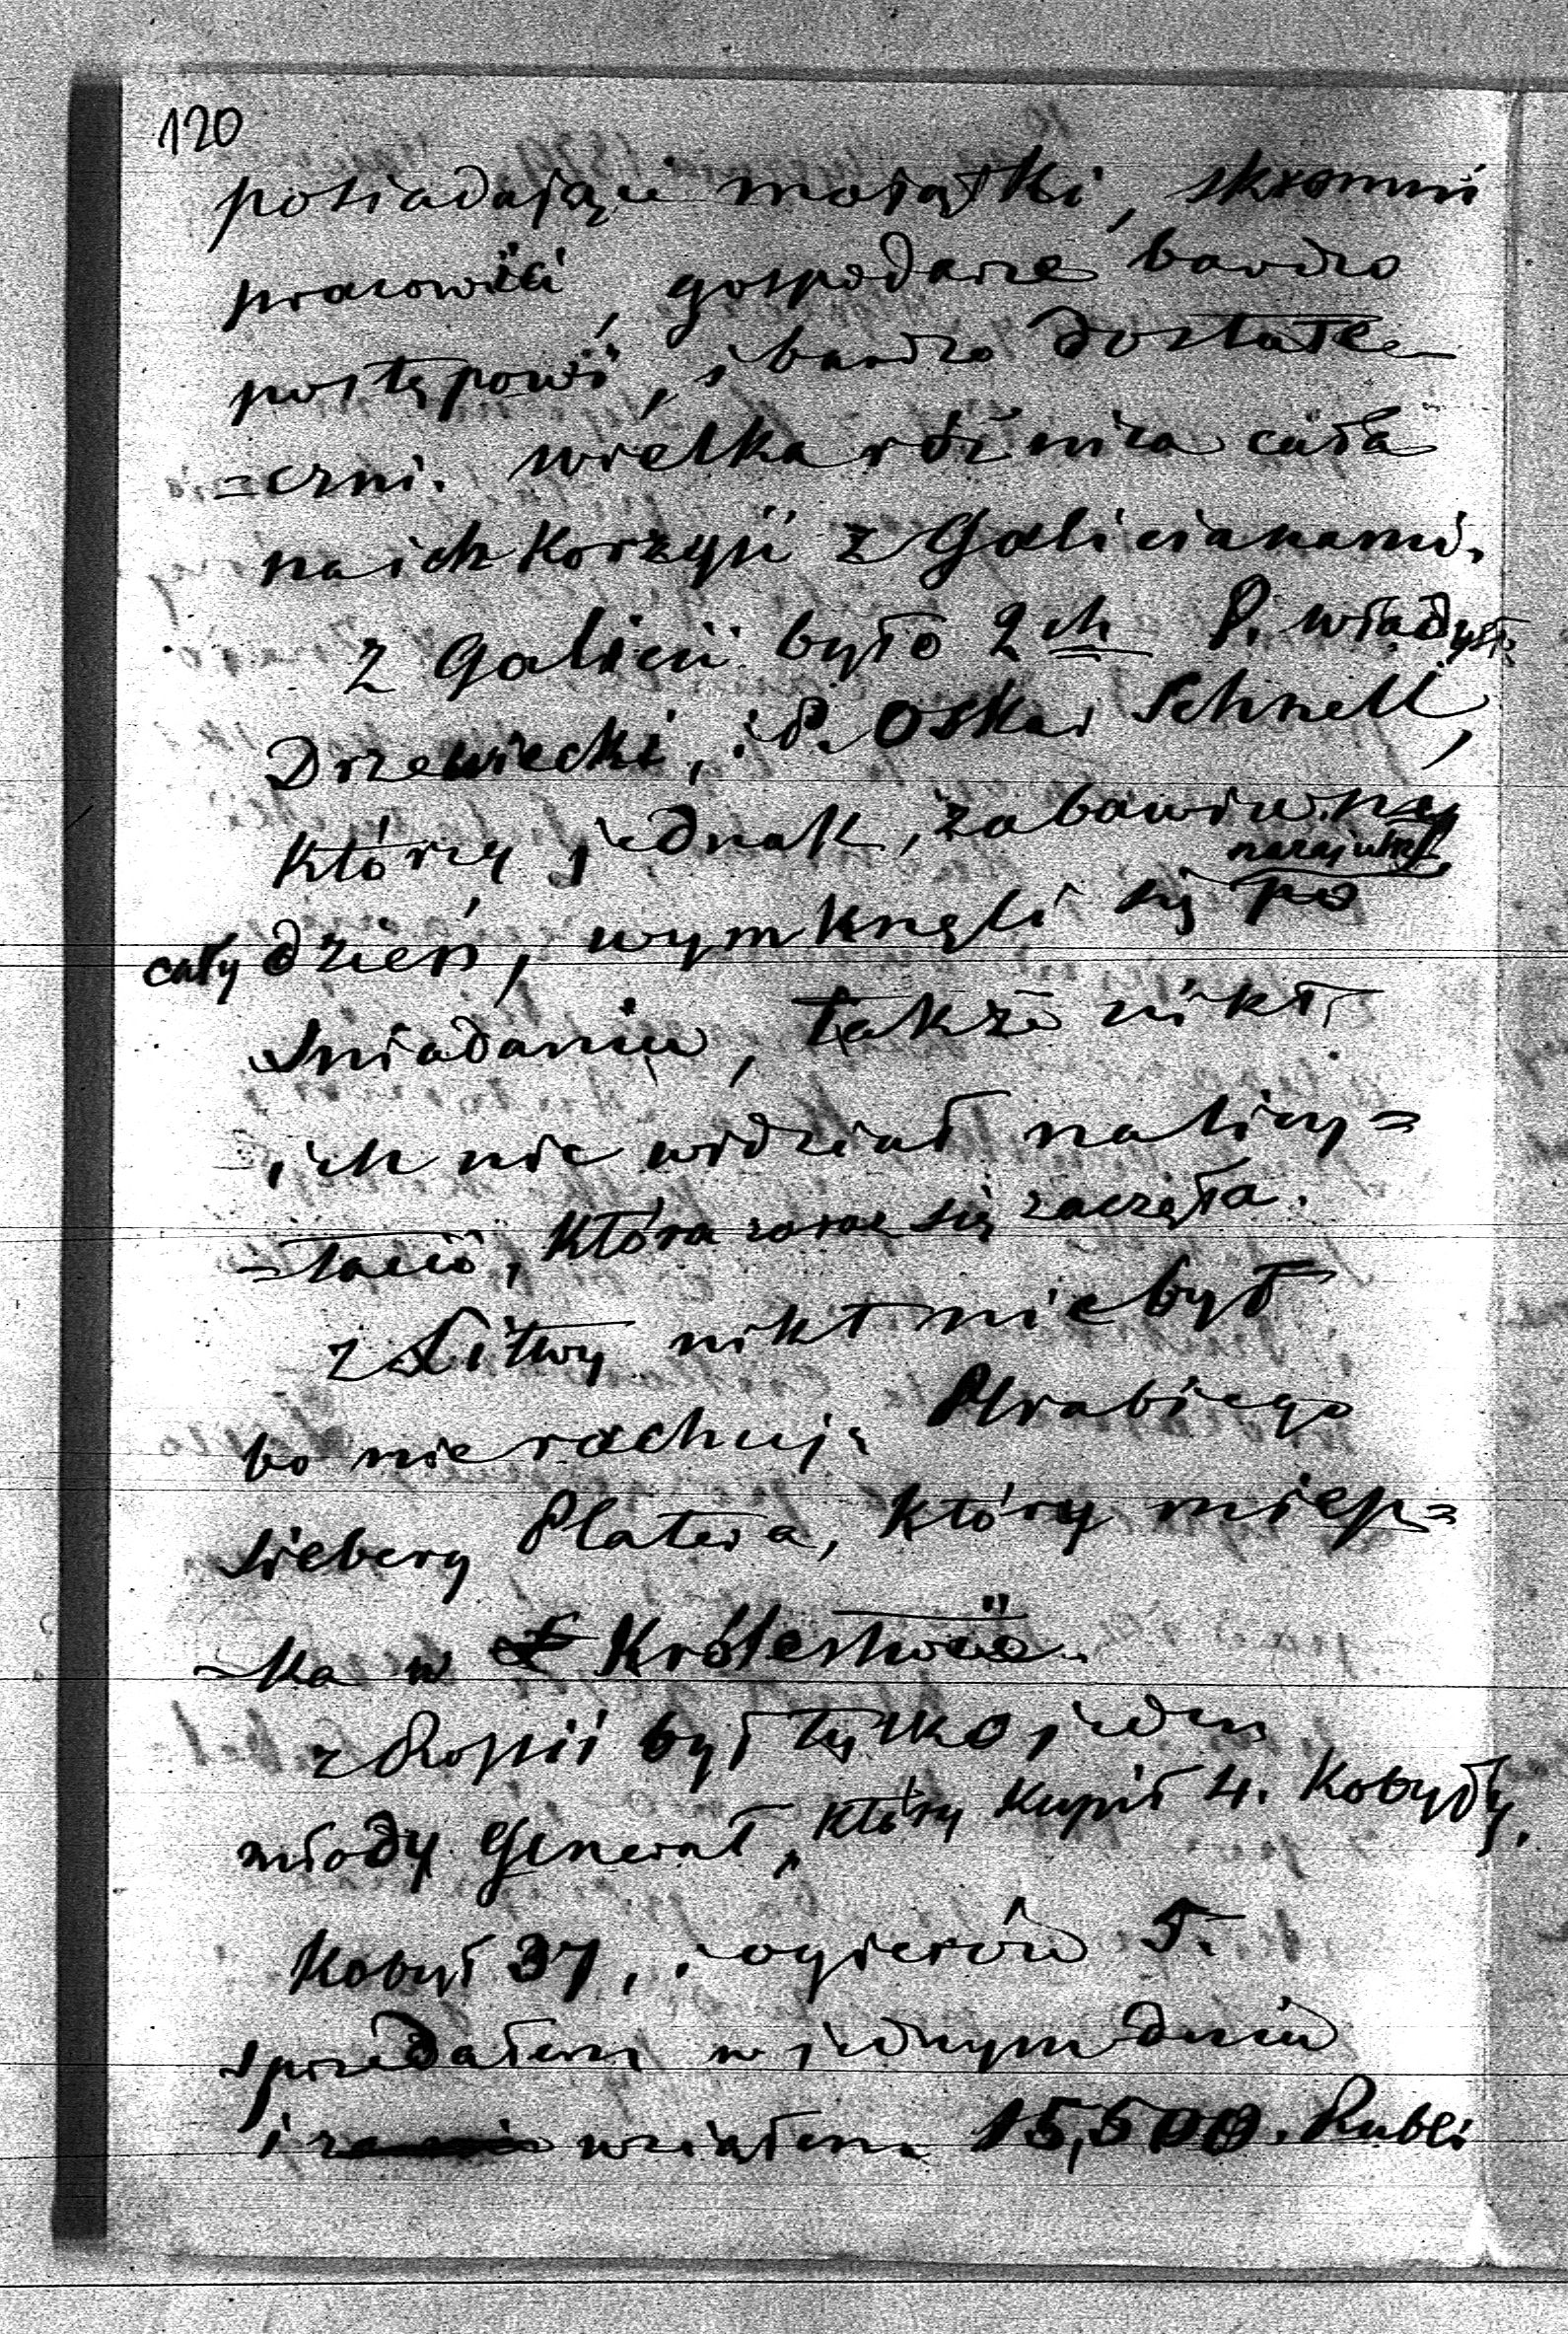 120
posiadające majątki, skromni
pracowici, gospodarze bardzo
postępowi, i bardzo dostate=
=czni. wielka różnica cała
na ich korzyść z Galicianami.
z Galicii było 2ch P. Władysł.
Drzewiecki, i P. Oskar Schnell,
którzy jednak, zabawiwszy
cały dzień, wymknęli się po
śniadaniu, także nikt
ich nie widział na licy=
=tacii, która zaraz się zaczęła.
z Litwy nikt nie był
bo nie rachuję Hrabiego
Sieberg Platera, który miesz=
=ka w Królestwie.
z Rossii był tylko jeden
młody Generał, który kupił 4. Kobyły.
Kobył 37, i ogierów 5.
sprzedałem w jednym dniu
i wziąłem 15,500. Rubli